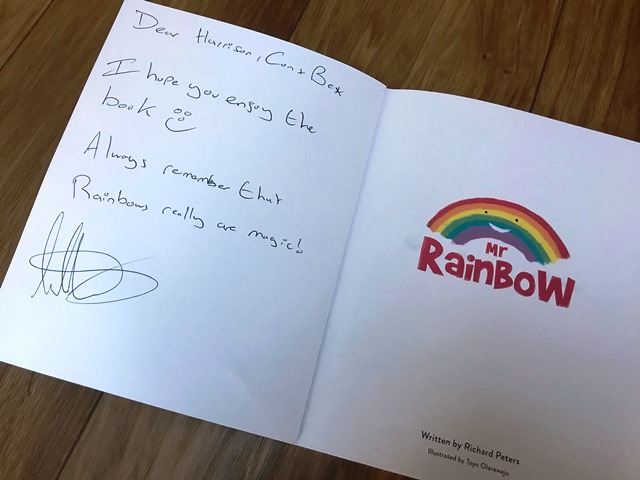 Dear Harrison, Con + Bex
I hope you enjoy the
book
Always remember that
Rainbows really are magic!
Mr
RainBoW
Written by Richard Peters
Illustrated by Tayo Olarewaju